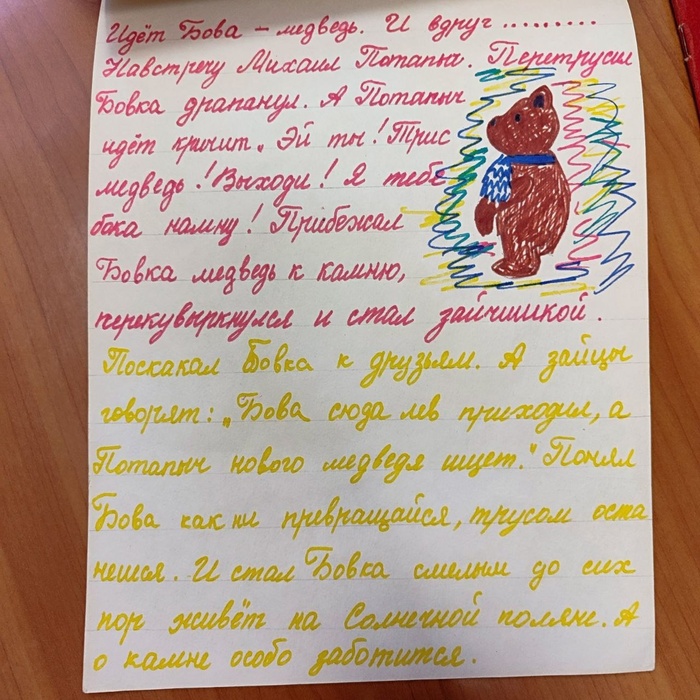 Идёт Бова – медведь. И вдруг ..........
Навстречу Михаил Потапыч. Перетрусил
Бовка драпанул. А Потапыч
идёт кричит „Эй ты! Трус
медведь! Выходи! Я тебе
бока намну! Прибежал
Бовка медведь к камню,
перекувыркнулся и стал зайчишкой.
Поскакал Бовка к друзьям. А зайцы
говорят: „Бова сюда лев приходил, а
Потапыч нового медведя ищет." Понял
Бова как ни превращайся, трусом оста
нешся. И стал Бовка смелым до сих
пор живёт на Солнечной поляне. А
о камне особо заботится.